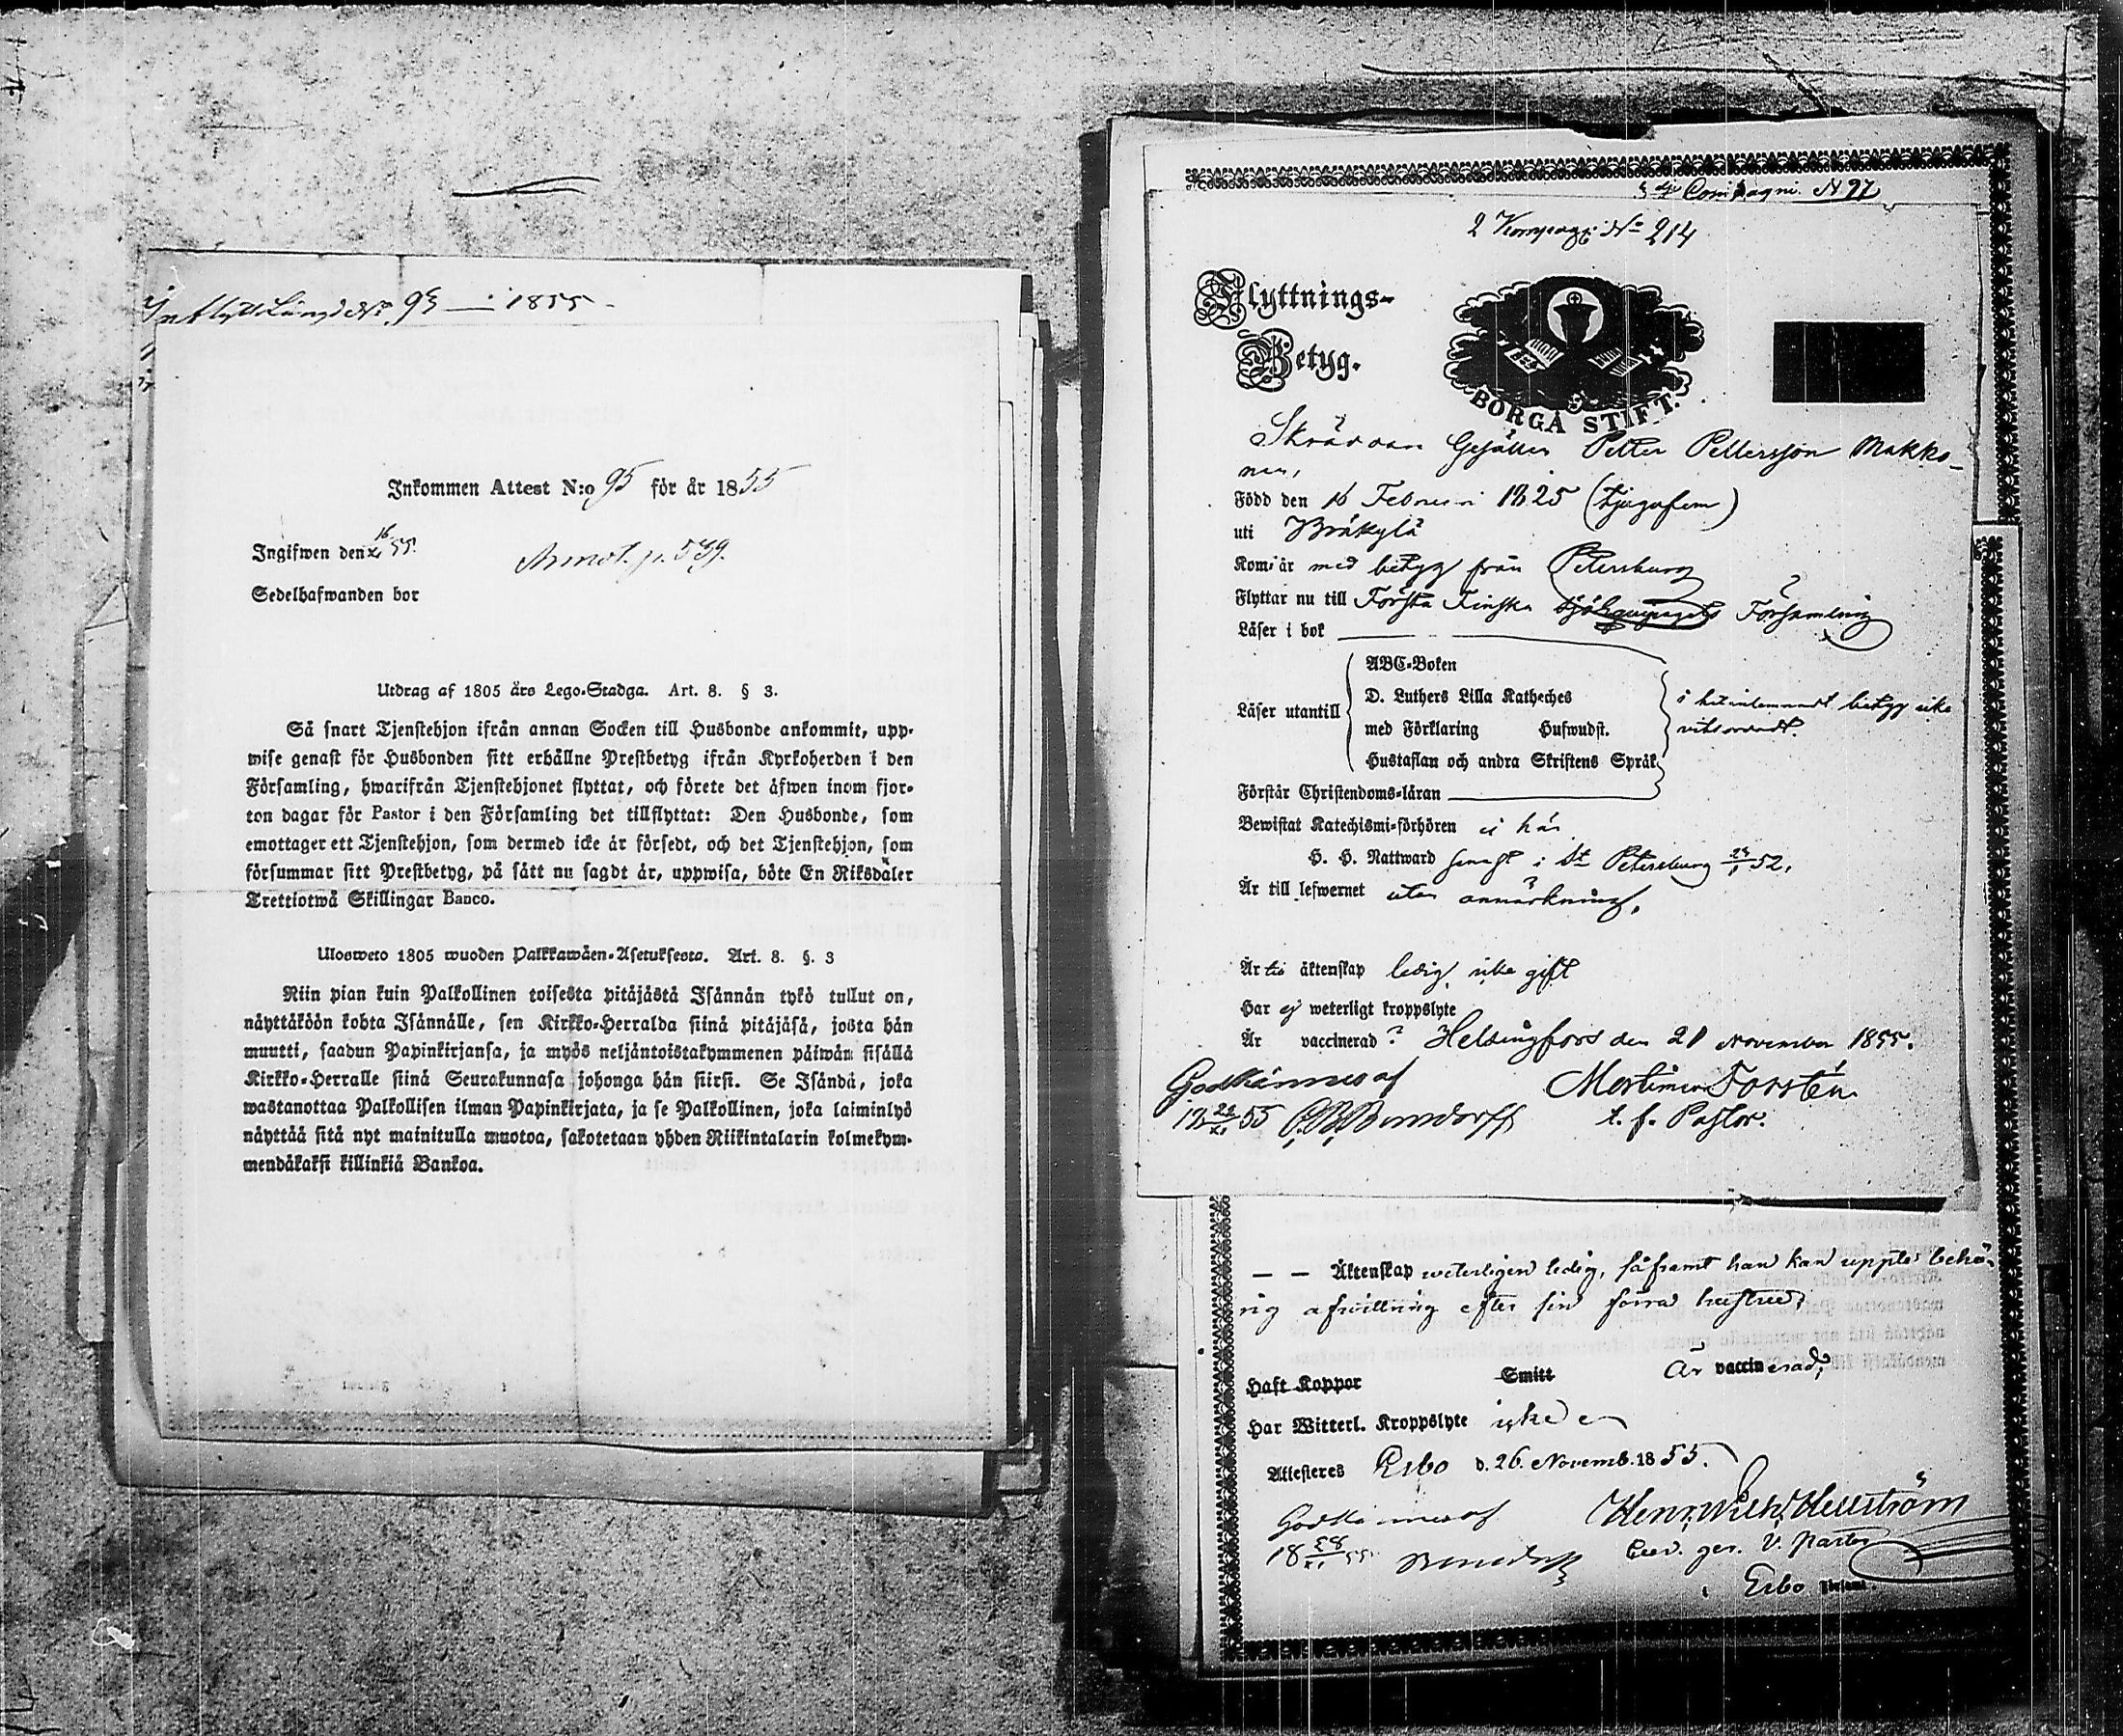 Inflytt Längd No 93 — 1855
Inkommen Attest N:o 95 för år 1855
Ingifwen den 16/XI 55.
Annot. p. 539.
Sedelhafwanden bor
Utdrag af 1805 års Lego-Stadga. Art. 8. § 3.
Så snart Tjenstehjon ifrån annan Socken till Husbonde ankommit, upp-
wise genast för Husbonden sitt erhållne Prestbetyg ifrån Kyrkoherden i den
Församling, hwarifrån Tjenstehjonet flyttat, och förete det äfwen inom fjor-
ton dagar för Pastor i den Församling det tillflyttat: Den Husbonde, som
emottager ett Tjenstehjon, som dermed icke är försedt, och det Tjenstehjon, som
försummar sitt Prestbetyg, på sätt nu sagdt är, uppwisa, böte En Riksdaler
Trettiotwå Skillingar Banco.
Ulosweto 1805 wuoden Palkkawäen-Asetuksesta. Art. 8. §. 3
Niin pian kuin Palkollinen toisesta pitäjästä Isännän tykö tullut on,
näyttäköön kohta Isännälle, sen Kirkko-Herralda siinä pitäjäsä, josta hän
muutti, saadun Papinkirjansa, ja myös neljäntoistakymmenen päiwän sisällä
Kirkko-Herralle siinä Seurakunnasa johonga hän siirsi. Se Isändä, joka
wastanottaa Palkollisen ilman Papinkirjata, ja se Palkollinen, joka laiminlyö
näyttää sitä nyt mainitulla muotoa, sakotetaan yhden Riikintalarin kolmekym-
mendäkaksi killinkiä Bankoa.
Compagni. N 97
2 Kompagi No 214
Flyttnings-
Betyg.
BORGÅ STIFT.
Skräddare Gesällen Petter Pettersson Makko-
nen,
Född den 16 Februari 1825 (tjugufem)
uti Bräkylä
Kom: är med betyg från Petersburg
Flyttar nu till Första Finska Sjö Equipagets Församling
Läser i bok
Läser utantill
ABC-Boken
D. Luthers Lilla Katheches
med Förklaring Hufwudst.
Hustaflan och andra Skriftens Språk
i hit inlemnadt betyg icke
vitsordadt.
Förstår Christendoms-läran
Bewistat Katechismi-förhören ej här
H. H. Nattward senast i St Petersburg 52.
Är till lefwernet utan anmärkning.
Är till äktenskap ledig, icke gift
Har ej weterligt kroppslyte
Är vaccinerad ? Helsingfors den 21 November 1855.
Godkännes af Mortimer Forstén
18 22/XI 55 t. f. Pastor.
— — Äktenskap weterligen ledig, såframt han kan uppte behö-
rig afwittring efter sin förra hustru,
Haft Koppor Smitt Är vaccinerad,
Har Witterl. Kroppslyte icke
Attesteras Esbo d. 26. Novemb. 1855.
Godkännes af Henr. Wilh. Hellström
18 28/XI 55 V. Pastor
i Esbo Församl.